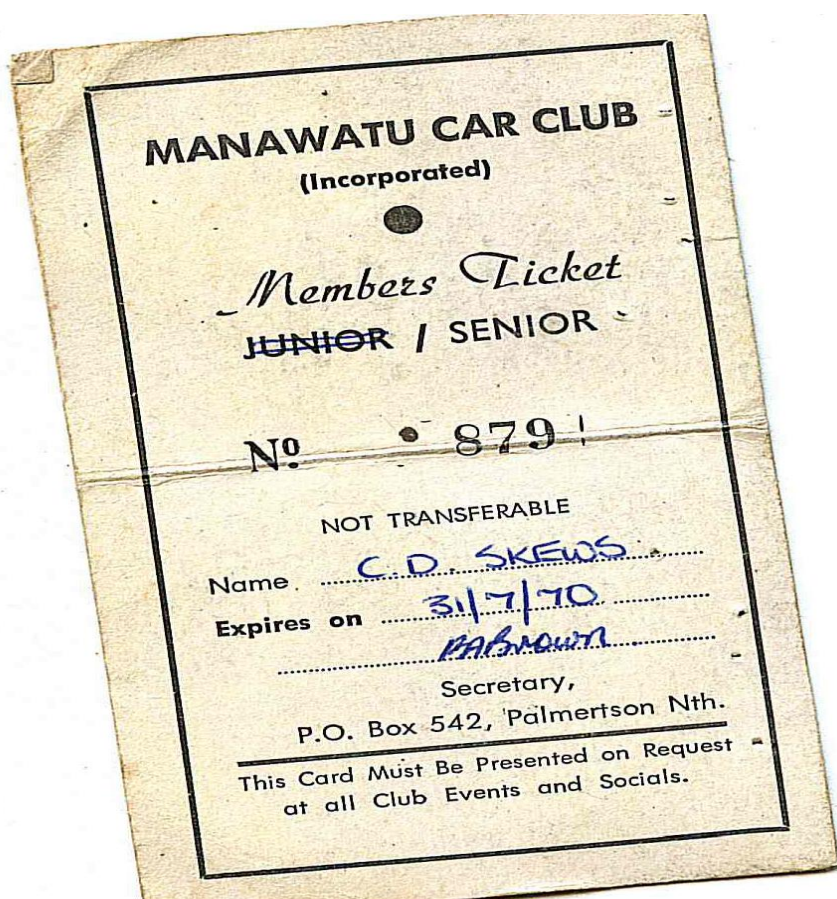 MANAWATU CAR CLUB
(Incorporated)
Members Ticket
JUNIOR / SENIOR
Nº 879
NOT TRANSFERABLE
Name C.D. SKEWS
Expires on 31/7/70
PABrown
Secretary,
P.O. Box 542, Palmertson Nth.
This Card Must Be Presented on Request
at all Club Events and Socials.